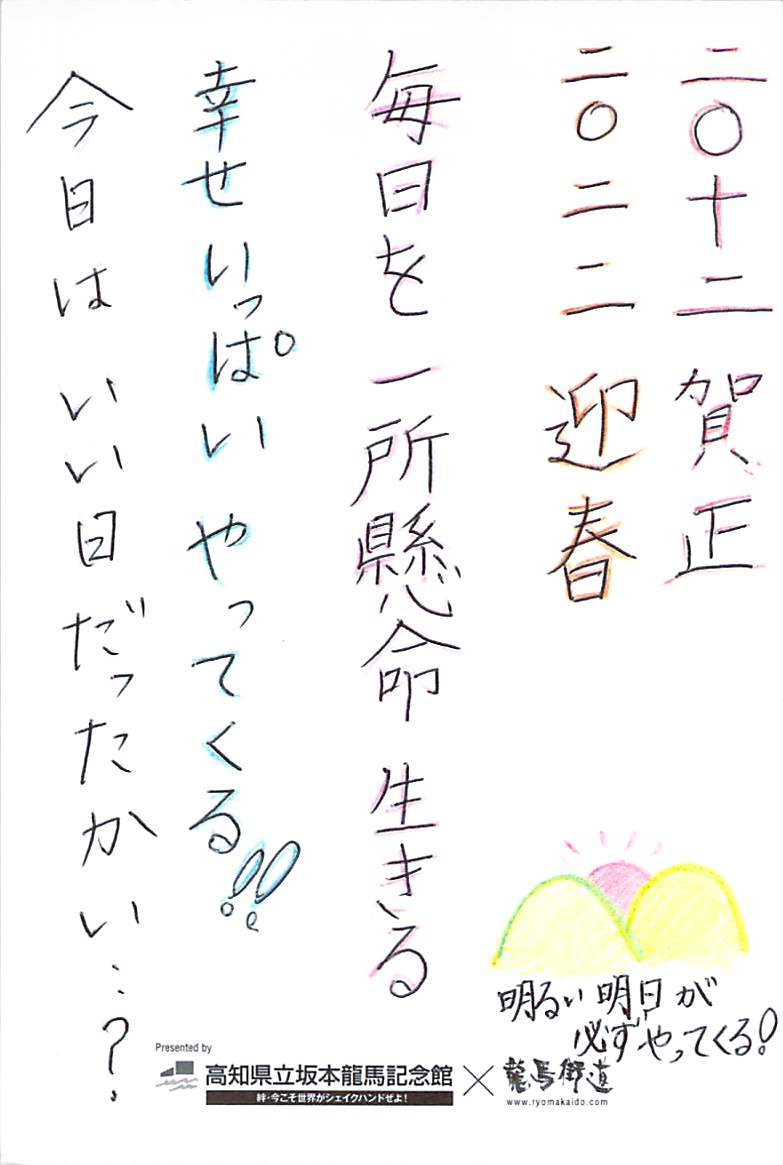 二〇十二 賀正
二〇二二 迎春
毎日を 一所懸命 生きる
幸せ いっぱい やってくる!!
今日は いい日だったかい…?
明るい 明日が
必ずやってくる!
Presented by
高知県立坂本龍馬記念館 × 龍馬街道
絆・今こそ世界がシェイクハンドぜよ!
www.ryomakaido.com